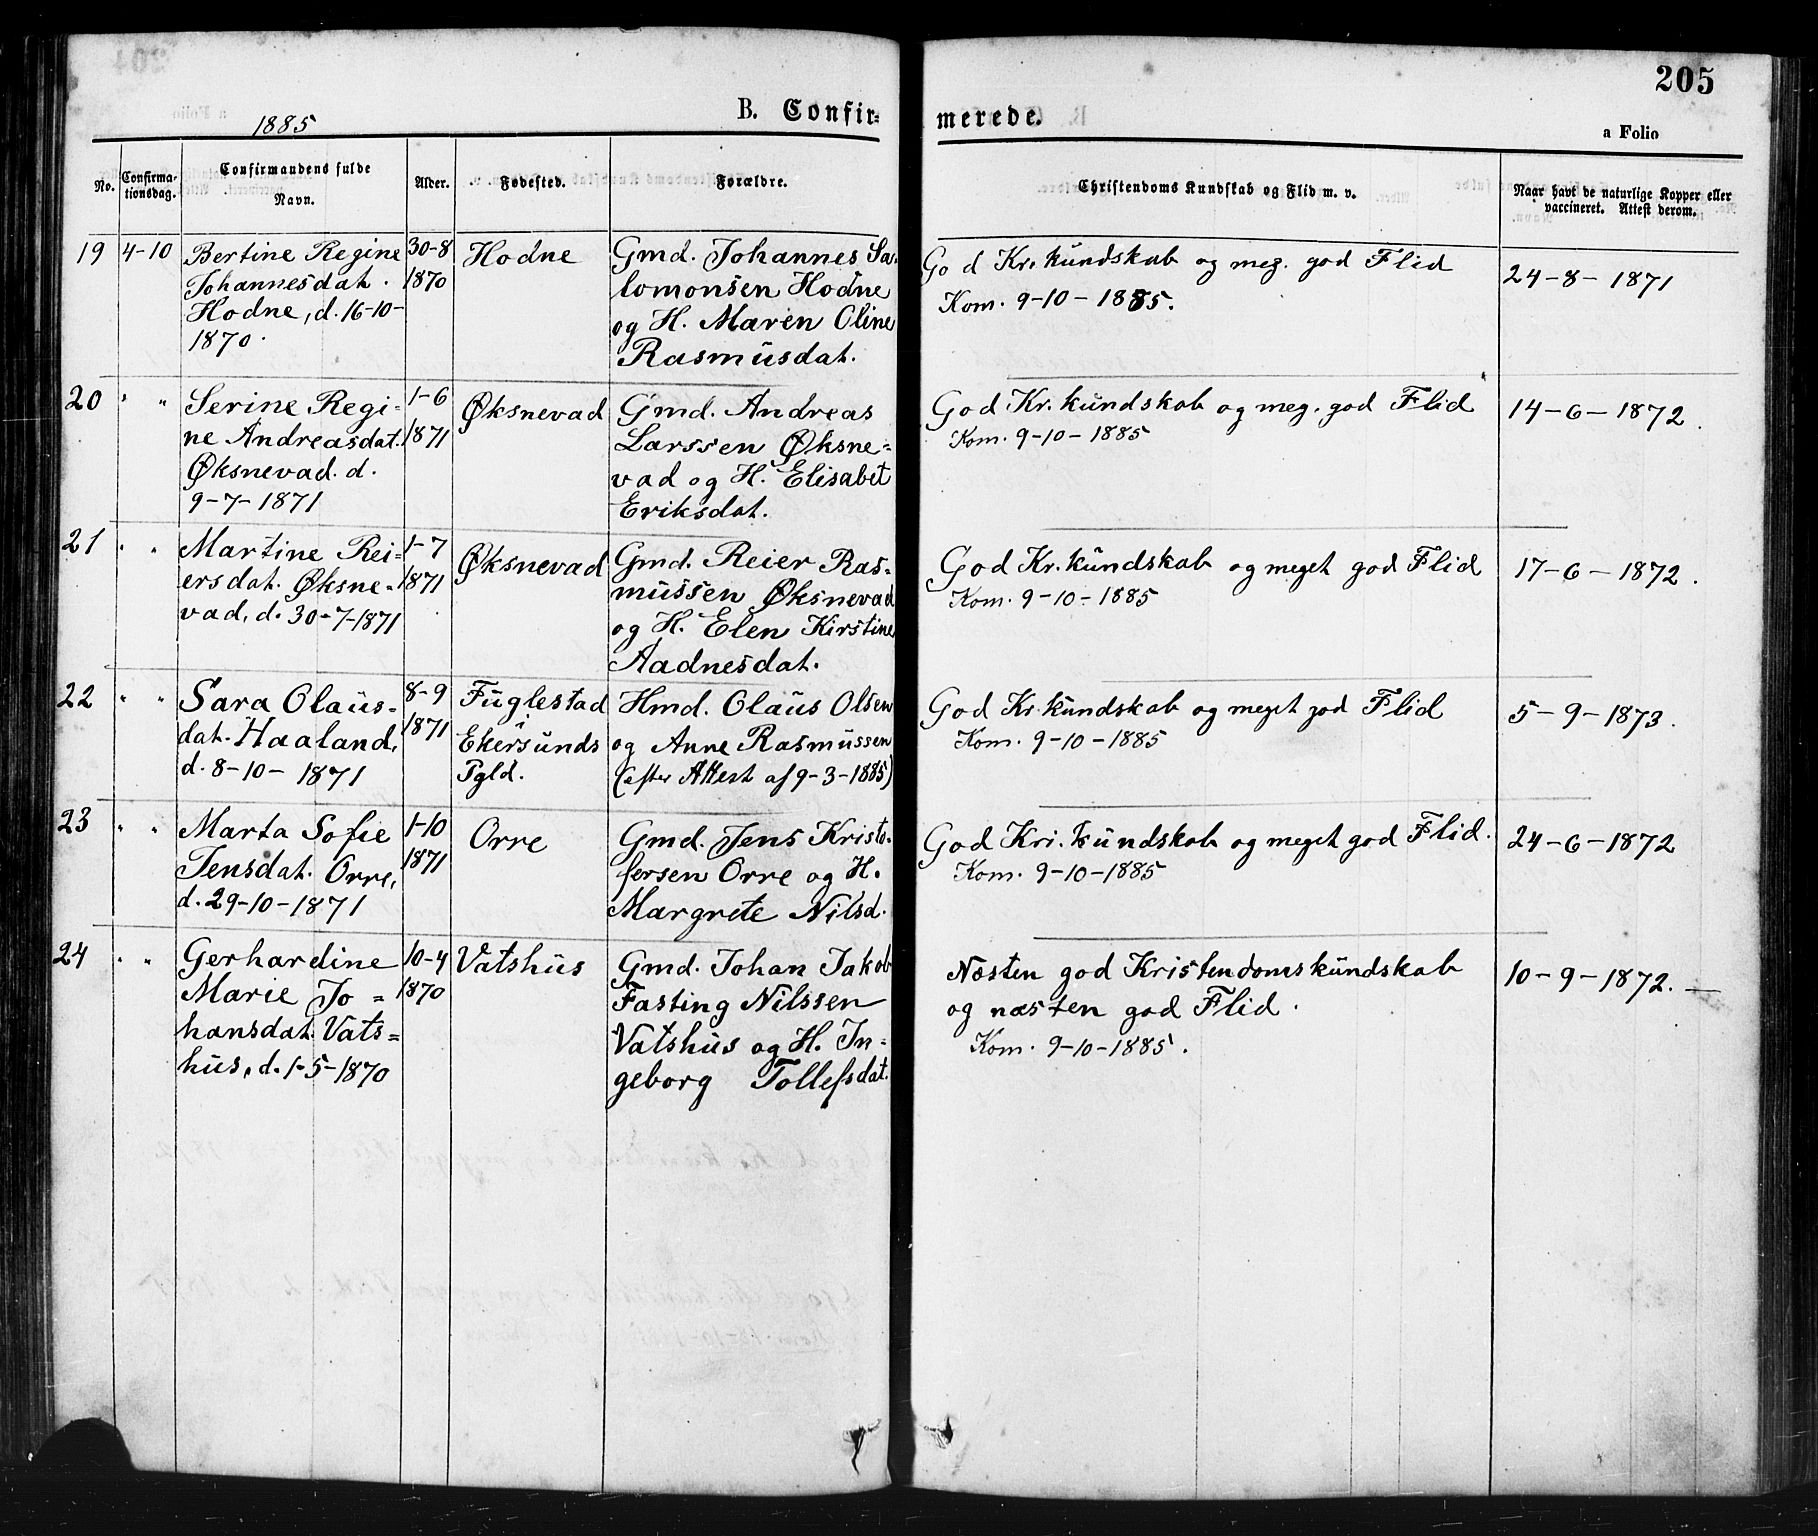 205
1885
B. Confir-
merede.
a Folio
No.
Confirma-
tionsdag.
Confirmandens fulde
Navn.
Alder.
Fødested.
Forældre.
Christendoms Kundskab og Flid m. v.
Naar havt de naturlige Kopper eller
vaccineret. Attest derom.
19 4-10
Bertine Regine
Johannesdat.
Hodne, d. 16-10-
1870.
30-8
1870
Hodne
Gmd. Johannes Sa-
lomonsen Hodne
og H. Maren Oline
Rasmusdat.
God Kr. kundskab og meg. god Flid
Kom. 9-10-1885.
24-8-1871
20 " "
Serine Regi-
ne Andreasdat.
Øksnevad. d.
9-7-1871
1-6
1871
Øksnevad
Gmd. Andreas
Larssen Øksne-
vad og H. Elisabet
Eriksdat.
God Kr. kundskab og meg. god Flid
Kom. 9-10-1885
14-6-1872.
21 " "
Martine Rei-
ersdat. Øksne-
vad, d. 30-7-1871
1-7
1871
Øksnevad
Gmd. Reier Ras-
mussen Øksnevad
og H. Elen Kirstine
Aadnesdat.
God Kr. kundskab og meget god Flid
Kom. 9-10-1885
17-6-1872.
22 " "
Sara Olaus-
dat. Haaland,
d. 8-10-1871
8-9
1871
Fuglestad
i
Ekersunds
Pgld.
Hmd. Olaus Olsen
og Anne Rasmussen
(efter Attest af 9-3-1885)
God Kr. kundskab og meget god Flid
Kom. 9-10-1885
5-9-1873.
23 " "
Marta Sofie
Jensdat. Orre,
d. 29-10-1871
1-10
1871
Orre
Gmd. Jens Kristo-
fersen Orre og H.
Margrete Nilsd.
God Kri. kundskab og meget god Flid.
Kom. 9-10-1885
24-6-1872
24 " "
Gerhardine
Marie Jo=
hansdat. Vats=
hus, d. 1-5-1870
10-4
1870
Vatshus
Gmd. Johan Jakob
Fasting Nilssen
Vatshus og H. In=
geborg Tollefsdat.
Næsten god Kristendomskundskab
og næsten god Flid.
Kom. 9-10-1885.
10-9-1872.